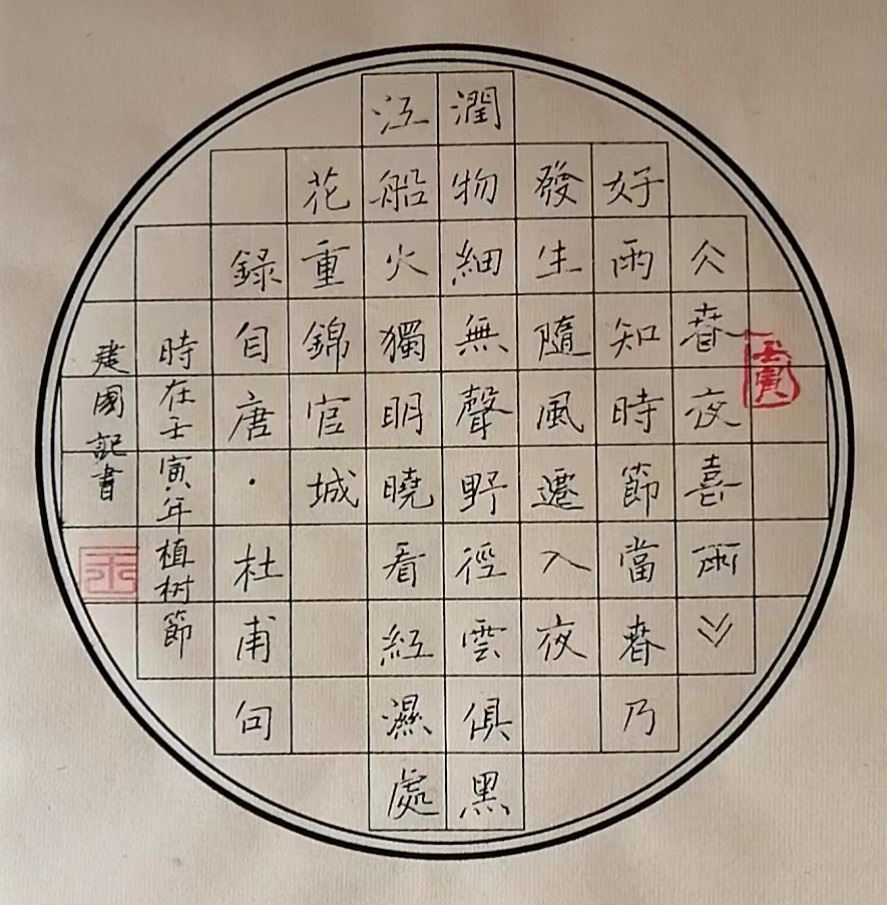 壬寅
《春夜喜雨》
好雨知時節當春乃
發生隨風遷入夜
潤物細無聲野徑雲俱黑
江船火獨明曉看紅濕處
花重錦官城
録自唐·杜甫句
時在壬寅年植树節
建國記書